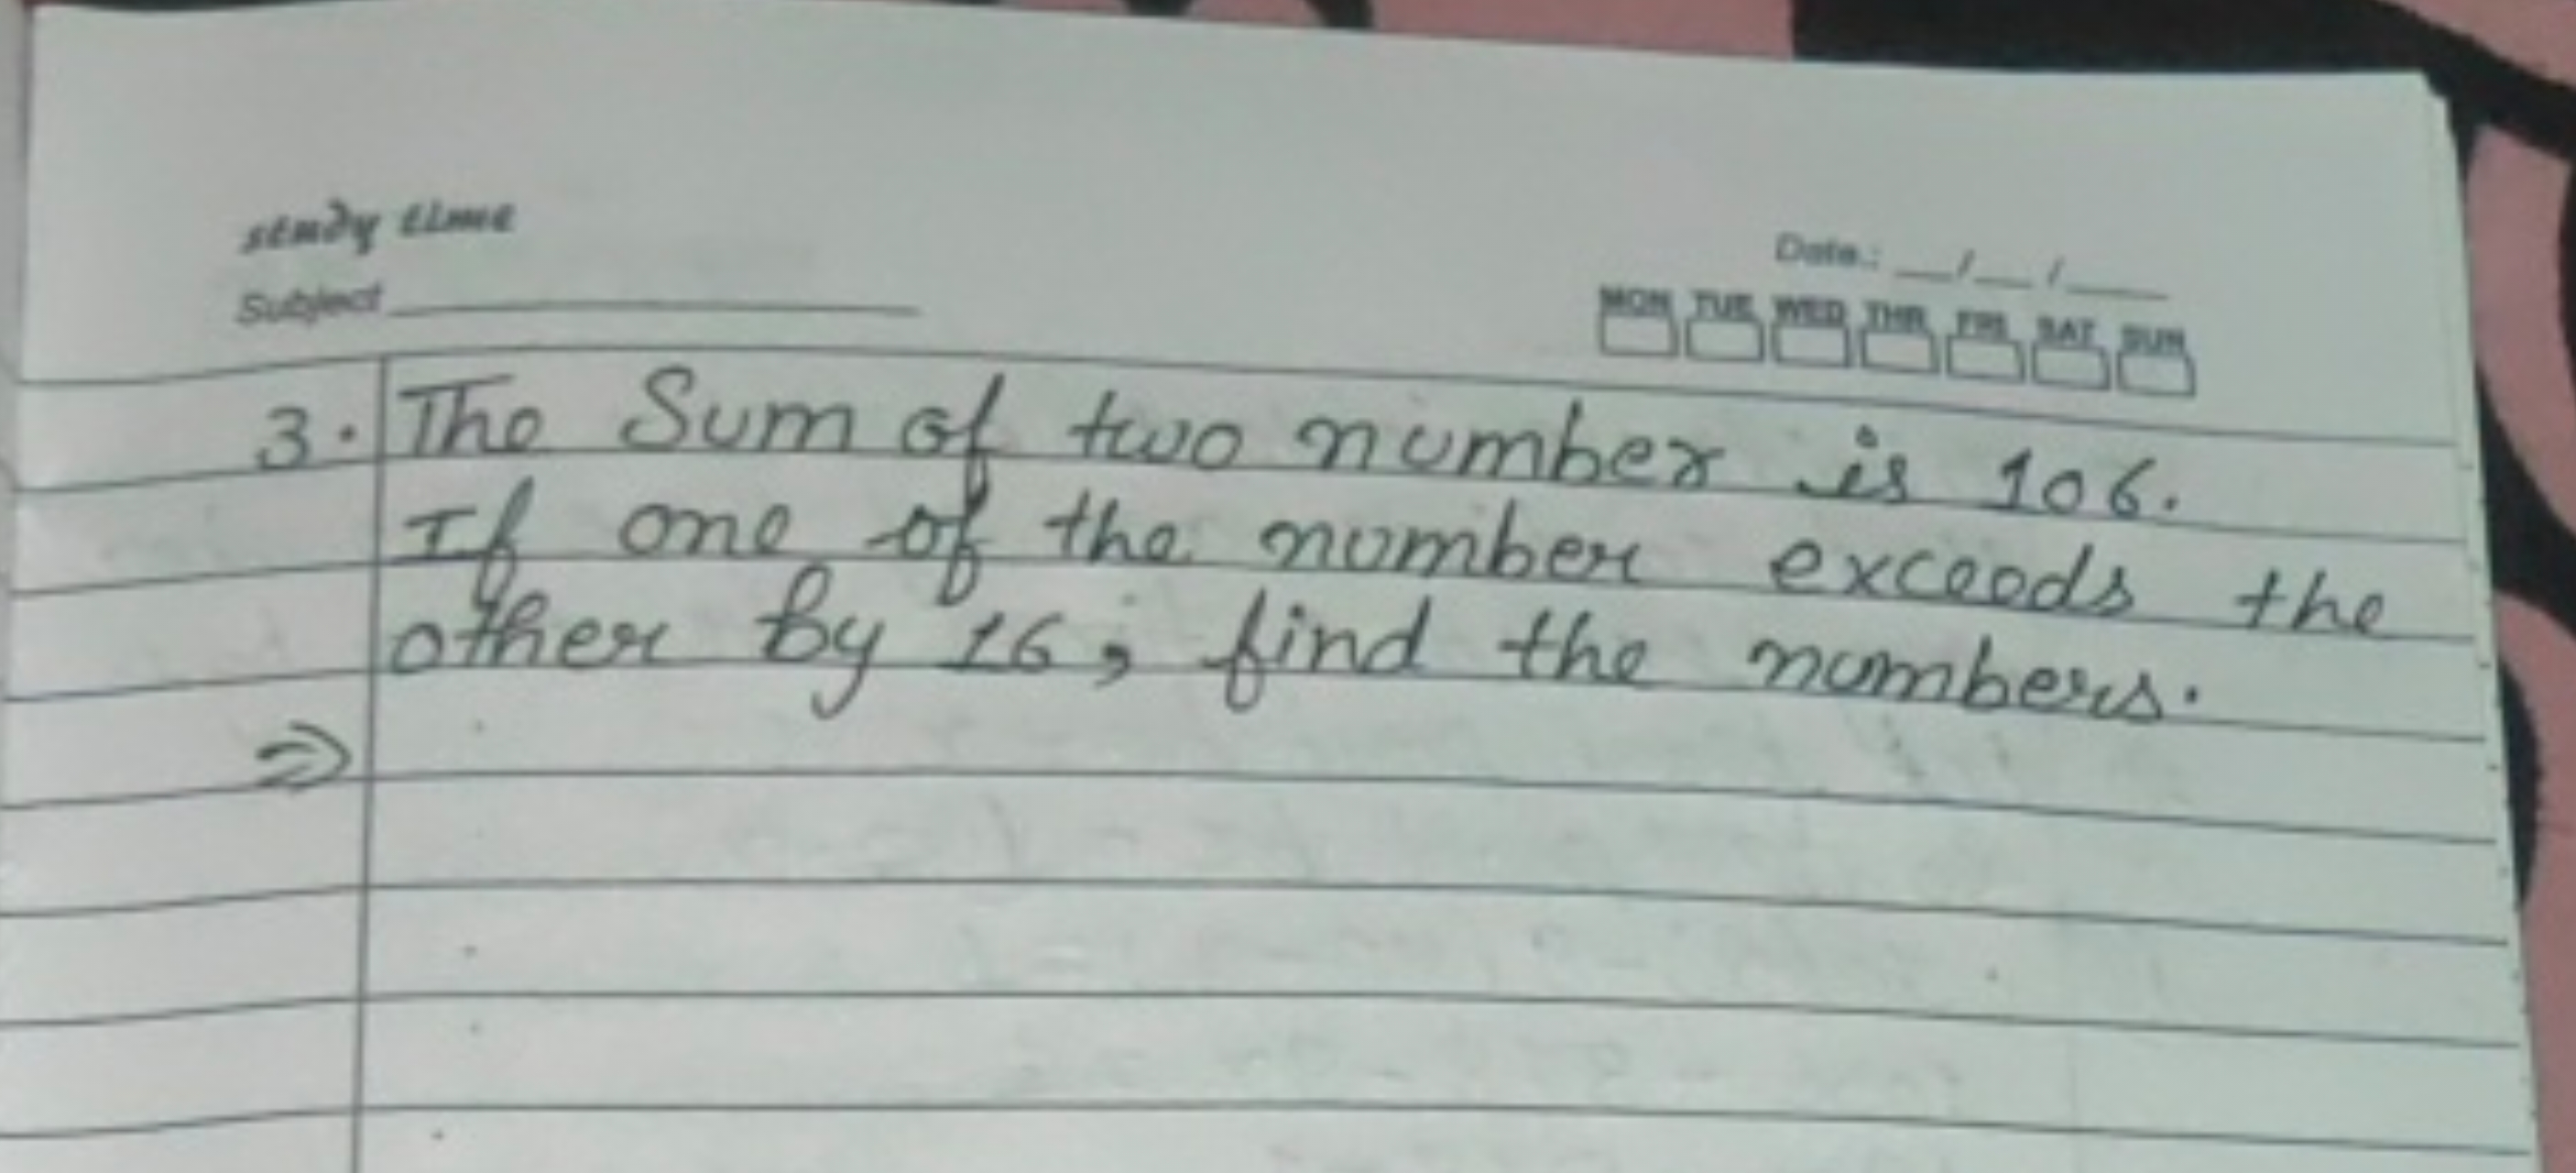 study time
Subject
Date.: __/__/____
MON TUE WED THR FRI SAT SUN
3. The Sum of two number is 106.
If one of the number exceeds the
other by 16, find the numbers.
⇒